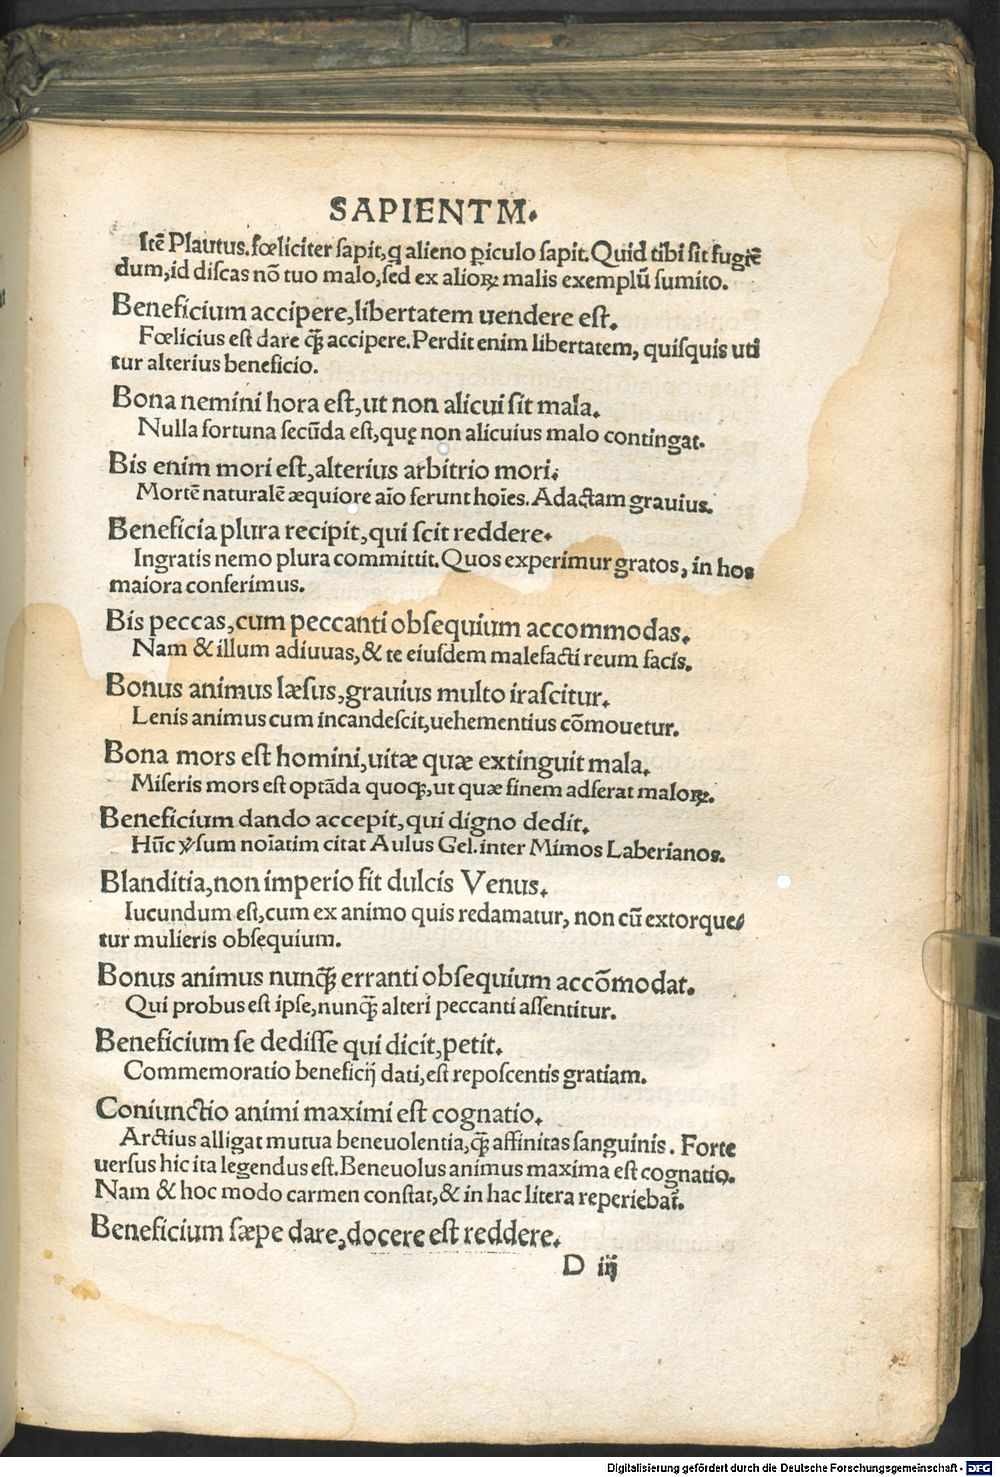 SAPIENTM.
Itē Plautus. fœliciter sapit, q alieno ꝑiculo sapit. Quid tibi sit fugiē
dum, id discas nō tuo malo, sed ex alioꝝ malis exemplū sumito.
Beneficium accipere, libertatem uendere est.
Fœlicius est dare q̄ꝫ accipere. Perdit enim libertatem, quisquis uti
tur alterius beneficio.
Bona nemini hora est, ut non alicui sit mala.
Nulla fortuna secūda est, quę non alicuius malo contingat.
Bis enim mori est, alterius arbitrio mori.
Mortē naturalē æquiore aīo ferunt hoīes. Adactam grauius.
Beneficia plura recipit, qui scit reddere.
Ingratis nemo plura committit. Quos experimur gratos, in hos
maiora conferimus.
Bis peccas, cum peccanti obsequium accommodas.
Nam & illum adiuuas, & te eiusdem malefacti reum facis.
Bonus animus læsus, grauius multo irascitur.
Lenis animus cum incandescit, uehementius cōmouetur.
Bona mors est homini, uitæ quæ extinguit mala.
Miseris mors est optāda quoqꝫ, ut quæ finem adferat maloꝝ.
Beneficium dando accepit, qui digno dedit.
Hūc ꝟsum noīatim citat Aulus Gel. inter Mimos Laberianos.
Blanditia, non imperio fit dulcis Venus.
Iucundum est, cum ex animo quis redamatur, non cū extorque⸗
tur mulieris obsequium.
Bonus animus nunq̄ꝫ erranti obsequium accōmodat.
Qui probus est ipse, nunq̄ꝫ alteri peccanti assentitur.
Beneficium se dedisse qui dicit, petit.
Commemoratio beneficij dati, est reposcentis gratiam.
Coniunctio animi maximi est cognatio.
Arctius alligat mutua beneuolentia, q̄ꝫ affinitas sanguinis. Forte
uersus hic ita legendus est. Beneuolus animus maxima est cognatio.
Nam & hoc modo carmen constat, & in hac litera reperiebat᷑.
Beneficium sæpe dare, docere est reddere.
D iij
Digitalisierung gefördert durch die Deutsche Forschungsgemeinschaft - DFG